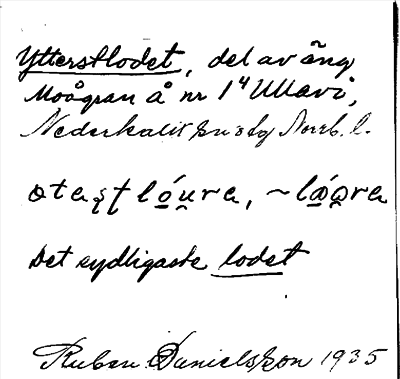 Ytterstlodet, del av äng
Moågran å nr 1⁴ Ullavi,
Nederkalix sn o tg Norrb. l.
lóura, ~
Det sydligaste lodet
Ruben Danielsson 1935